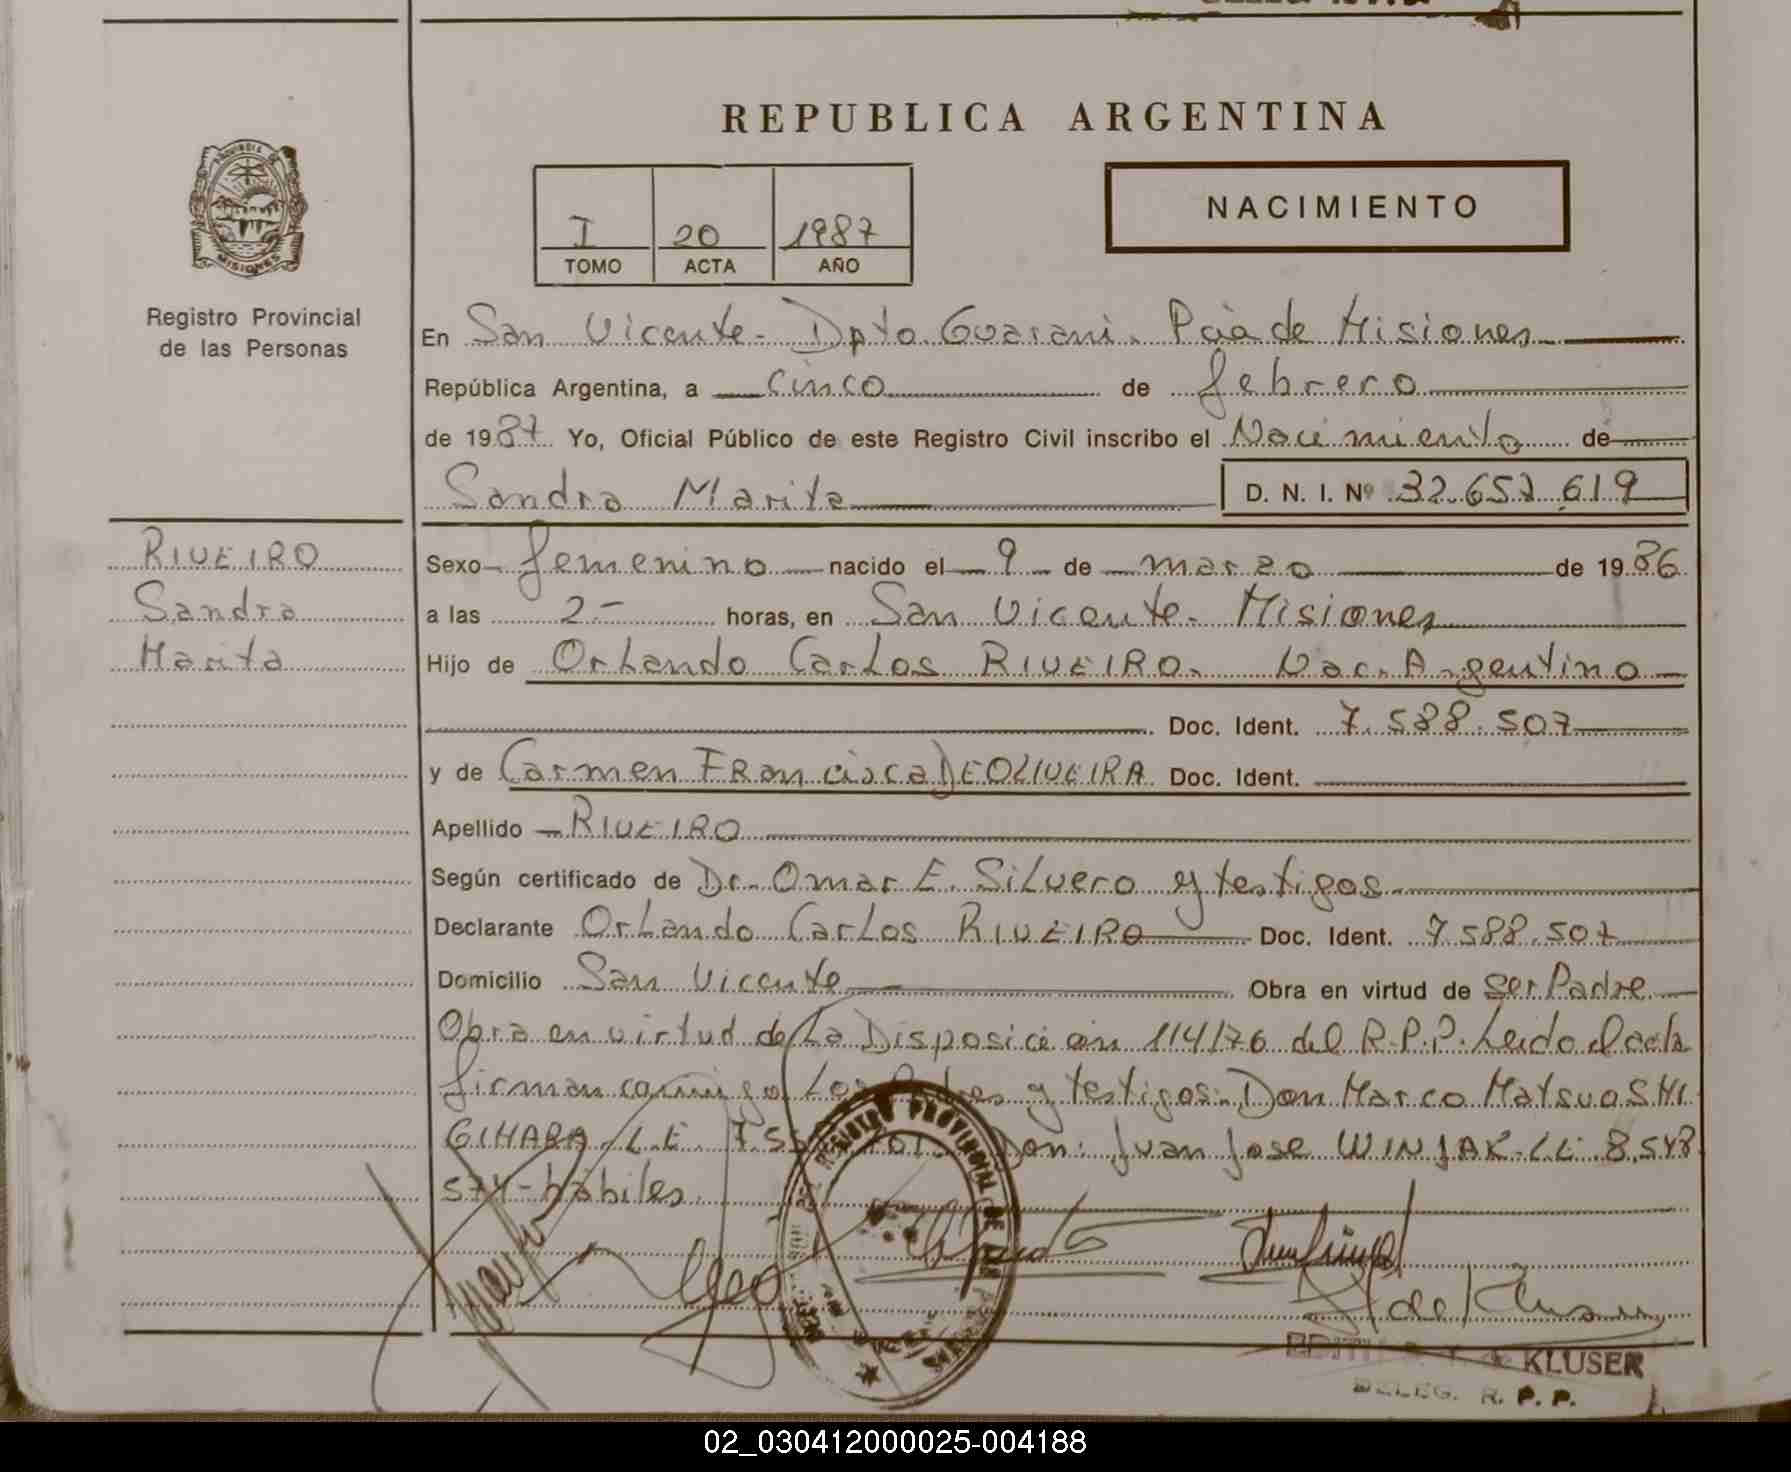 REPUBLICA ARGENTINA
PROVINCIA DE
MISIONES
Registro Provincial
de las Personas
I 20 1987
TOMO ACTA AÑO
NACIMIENTO
En San Vicente - Dpto. Guarani. Pcia de Misiones
República Argentina, a cinco de febrero
de 1987 Yo, Oficial Público de este Registro Civil inscribo el Nacimiento de
Sandra Marita D. N. I. Nº 32.657.619
RIVEIRO
Sandra
Marita
Sexo femenino nacido el 9 de marzo de 1986
a las 2- horas, en San Vicente - Misiones
Hijo de Orlando Carlos RIVEIRO. Nac. Argentino
Doc. Ident. 7.588.507
y de Carmen Francisca DEOLIVEIRA Doc. Ident.
Apellido RIVEIRO
Según certificado de Dr. Omar E. Silvero y testigos
Declarante Orlando Carlos RIVEIRO Doc. Ident. 7.588.507
Domicilio San Vicente Obra en virtud de ser Padre
Obra en virtud de la Disposición 114/76 del R.P.P. Leido el acta
firman conmigo los Padres y testigos: Don Marco Matsuo SHI
GIHARA - L.E. 7.55 Don: Juan Jose WINJAK - L.E. 8.548
574 - hábiles.
REGISTRO PROVINCIAL DE LAS PERSONAS
KLUSER
DELEG. R. P. P.
02_030412000025-004188